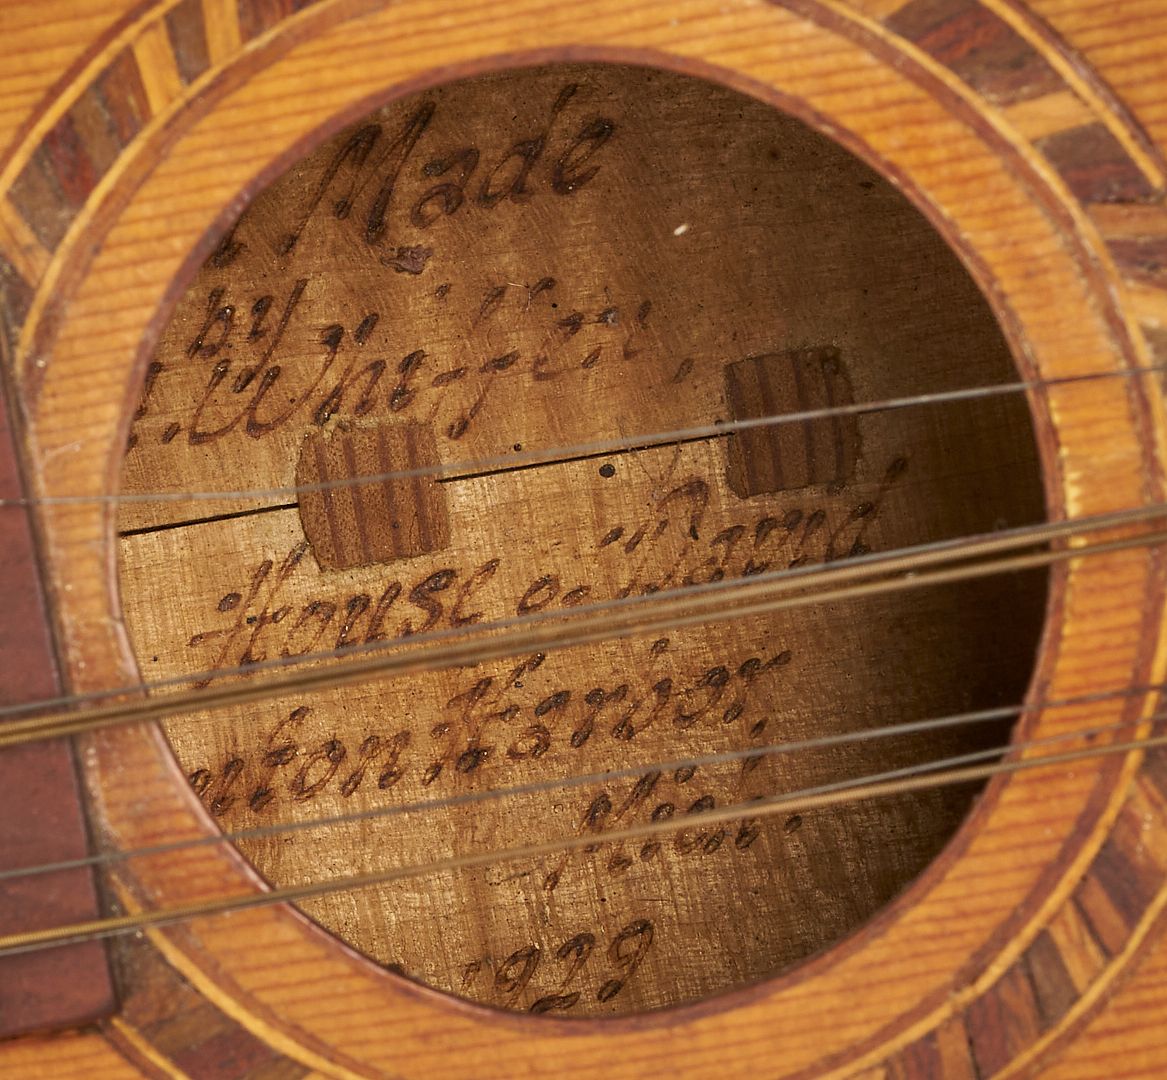 Made
by
.Whiffen,
House o. David
nton Harbor,
Mich.
1929